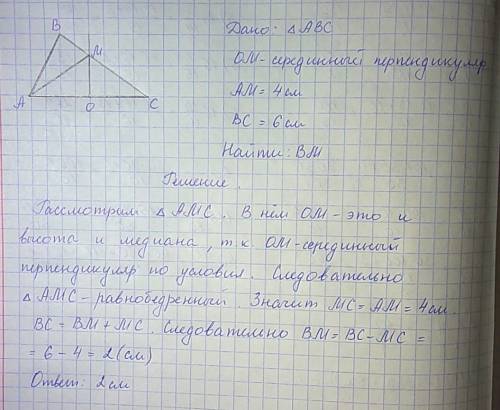 B
M
A
O
C
Дано: △ABC
OM - серединный перпендикуляр
AM = 4 см
BC = 6 см
Найти: BM
Решение.
Рассмотрим △AMC. В нём OM - это и
высота и медиана, т.к. OM - серединный
перпендикуляр по условию. Следовательно
△AMC - равнобедренный. Значит MC = AM = 4 см.
BC = BM + MC. Следовательно BM = BC - MC =
= 6 - 4 = 2 (см)
Ответ: 2 см